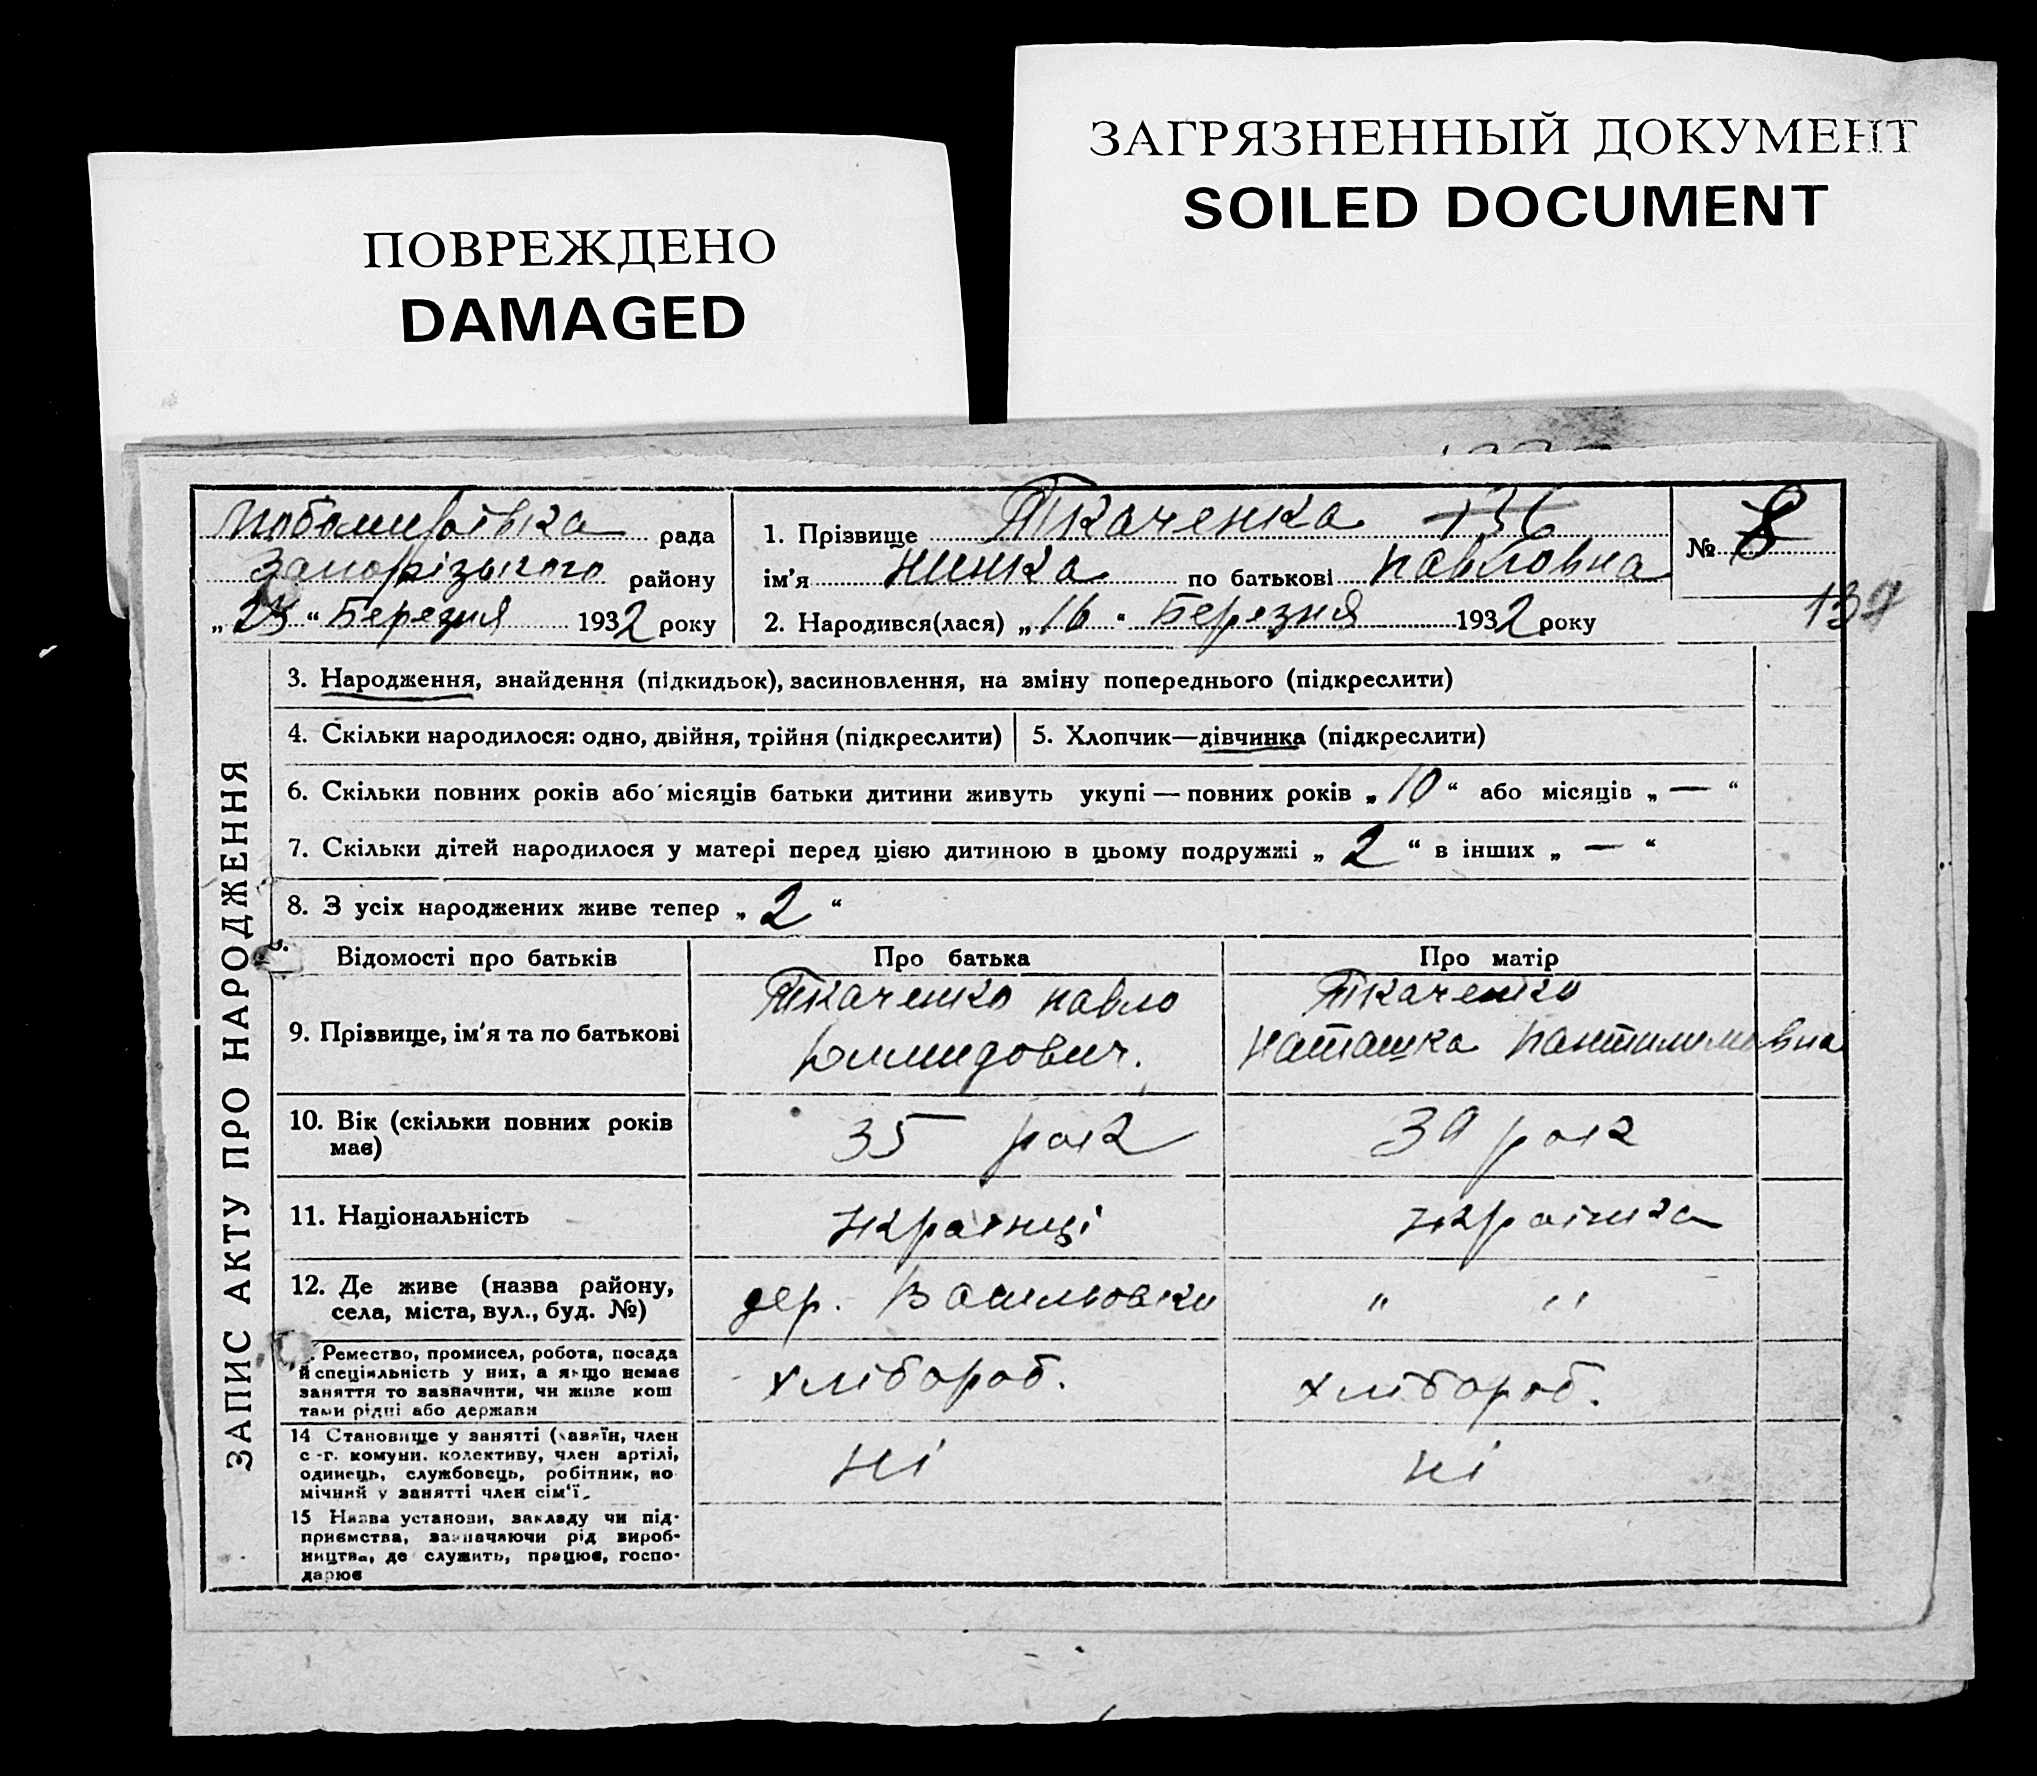 ЗАГРЯЗНЕННЫЙ ДОКУМЕНТ
SOILED DOCUMENT
ПОВРЕЖДЕНО
DAMAGED
рада
Запорізького району
„ “ Березня 1932 року
1. Прізвище Ткаченка 136
ім'я Нинка по батькові Павловна
2. Народився(лася) „ 16 “ Березня 1932 року
№ 8
ЗАПИС АКТУ ПРО НАРОДЖЕННЯ
3. Народження, знайдення (підкидьок), засиновлення, на зміну попереднього (підкреслити)
4. Скільки народилося: одно, двійня, трійня (підкреслити)
5. Хлопчик—дівчинка (підкреслити)
6. Скільки повних років або місяців батьки дитини живуть укупі — повних років „ 10 “ або місяців „ — “
7. Скільки дітей народилося у матері перед цією дитиною в цьому подружжі „ 2 “ в інших „ — “
8. З усіх народжених живе тепер „ 2 “
Відомості про батьків
Про батька
Про матір
9. Прізвище, ім'я та по батькові
Ткаченко Павло
Ткаченко
Наташка
10. Вік (скільки повних років
має)
35 рок
рок
11. Національність
12. Де живе (назва району,
села, міста, вул., буд. №)
дер.
" "
Ремество, промисел, робота, посада
й спеціяльність у них, а якщо немає
заняття то зазначити, чи живе кош
тами рідні або держави
хлібороб.
хлібороб.
14 Становище у занятті (хазяїн, член
с-г. комуни, колективу, член артілі,
одинець, службовець, робітник, по
мічний у занятті член сім'ї.
ні
ні
15 Назва установи, закладу чи під-
приємства, зазначаючи рід вироб-
ництва, де служить, працює, госпо-
дарює